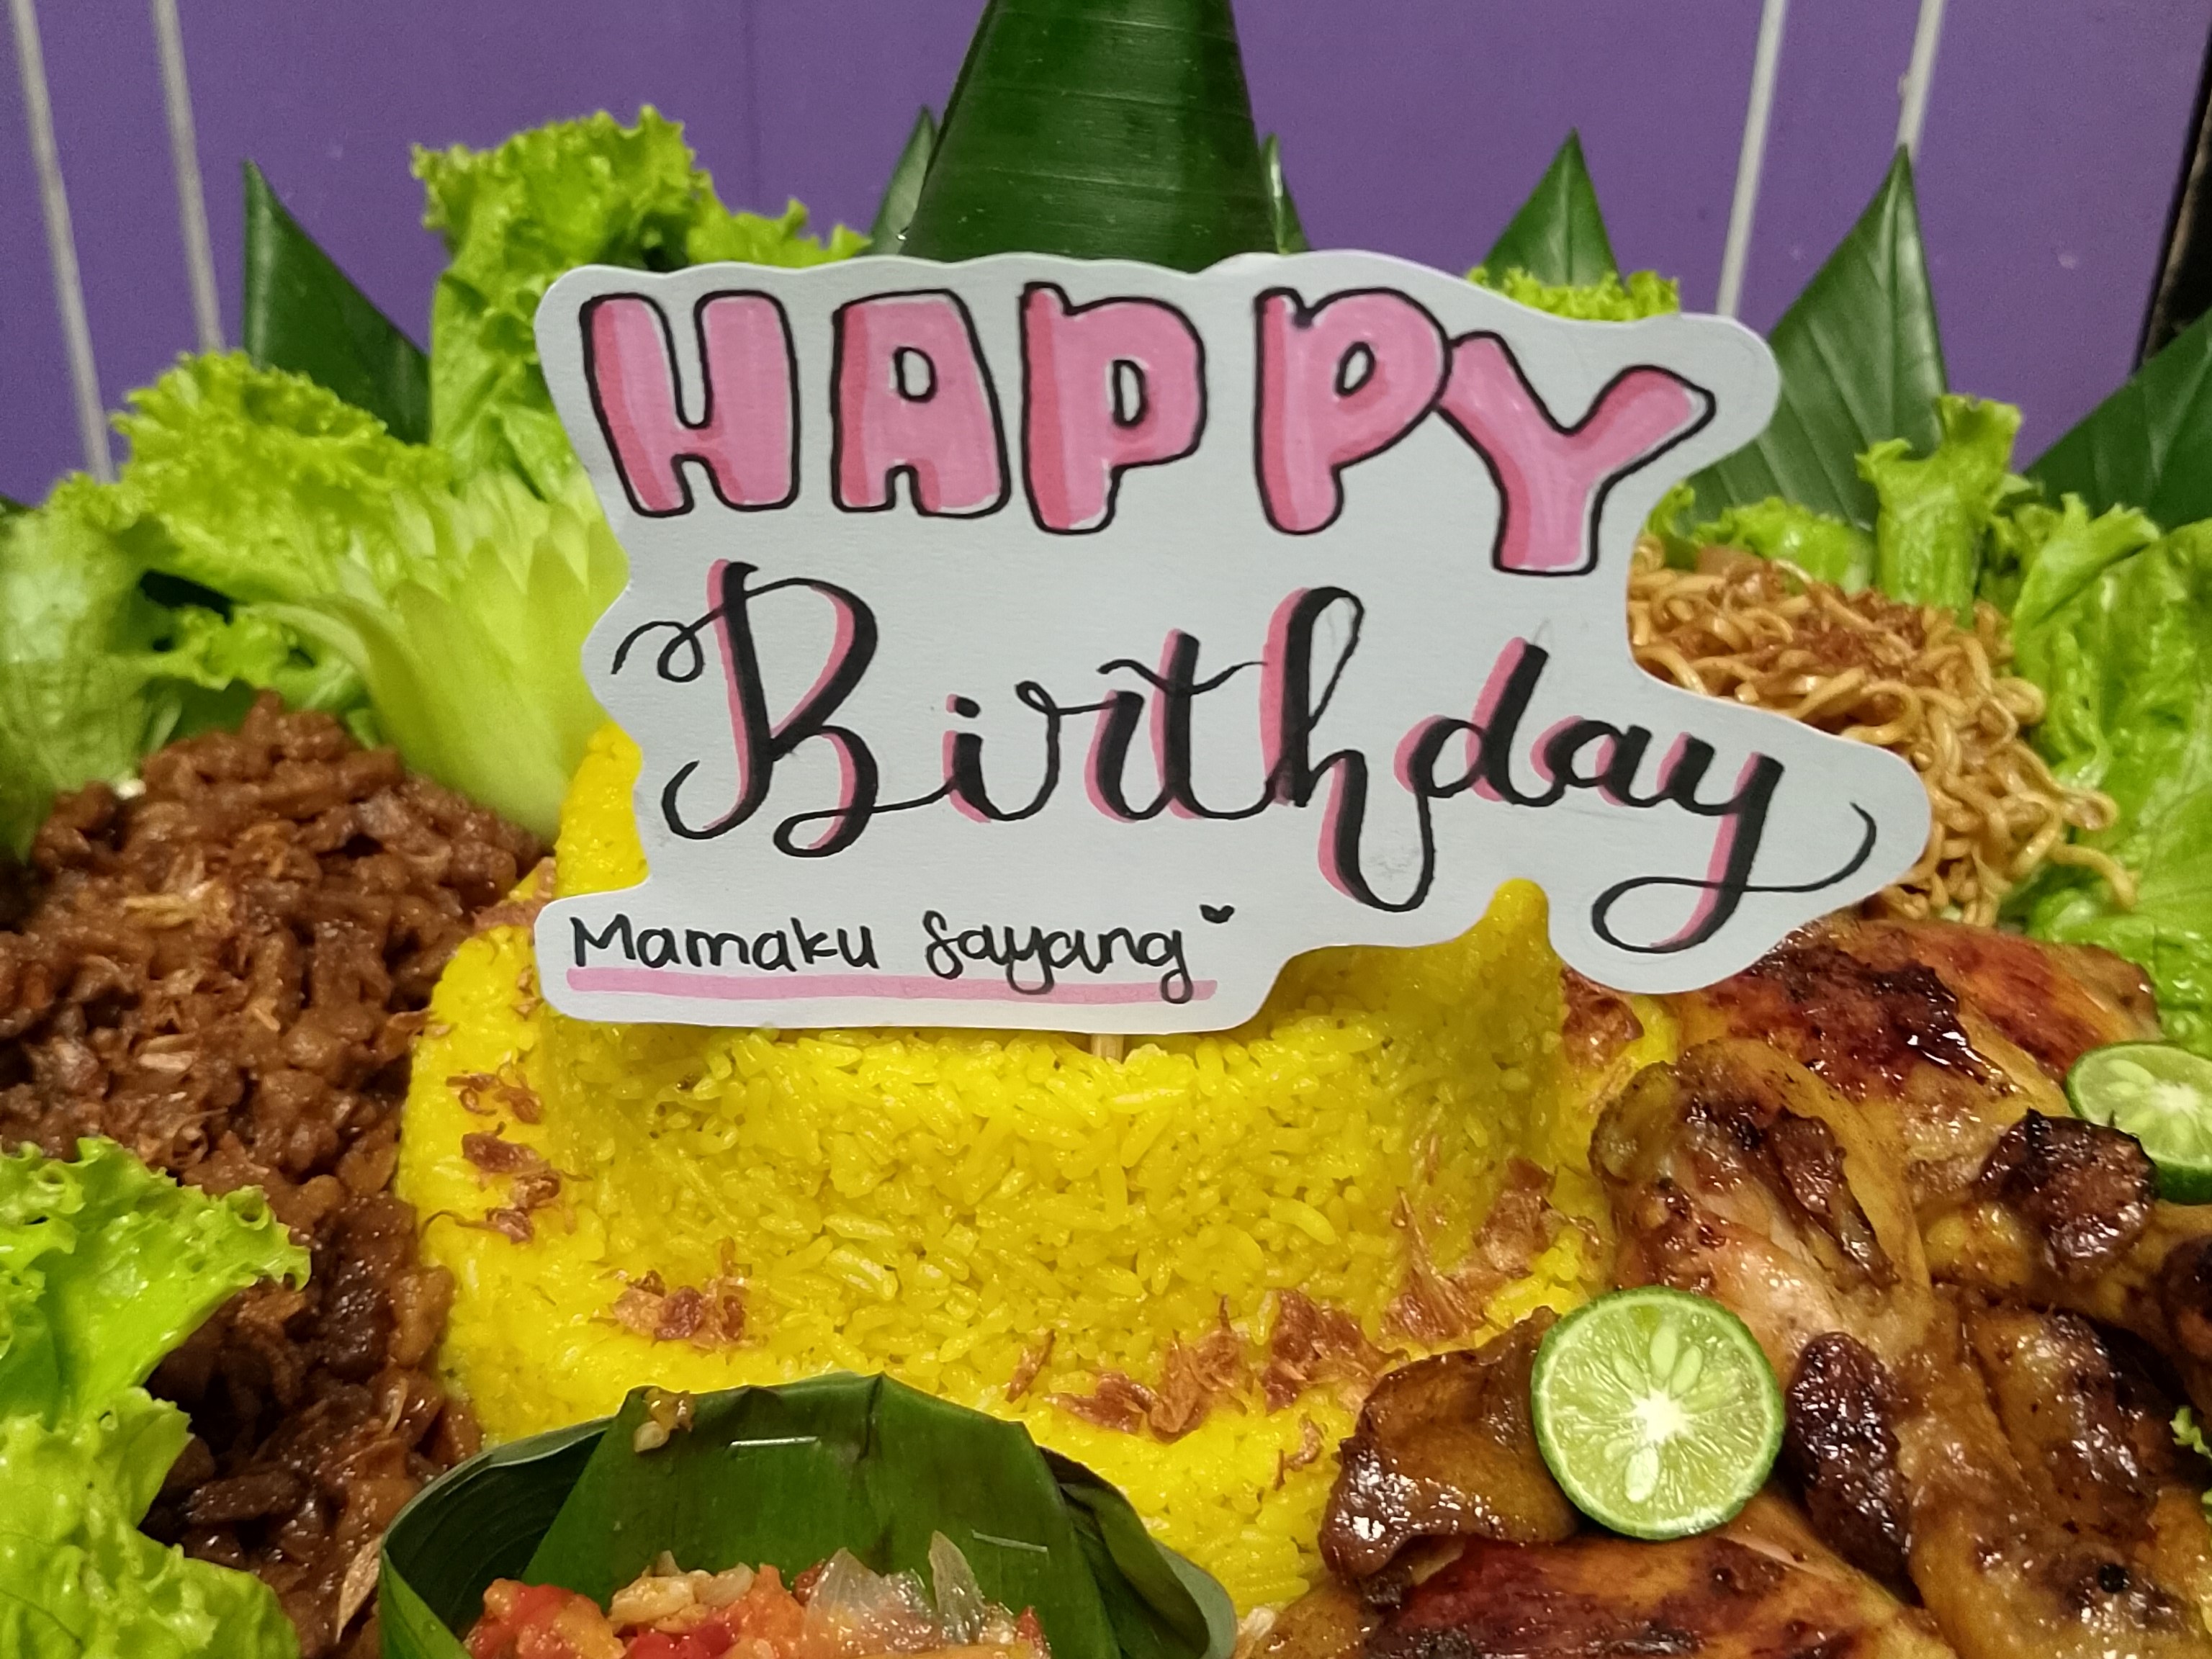 HAPPY
Birthday
Mamaku Sayang